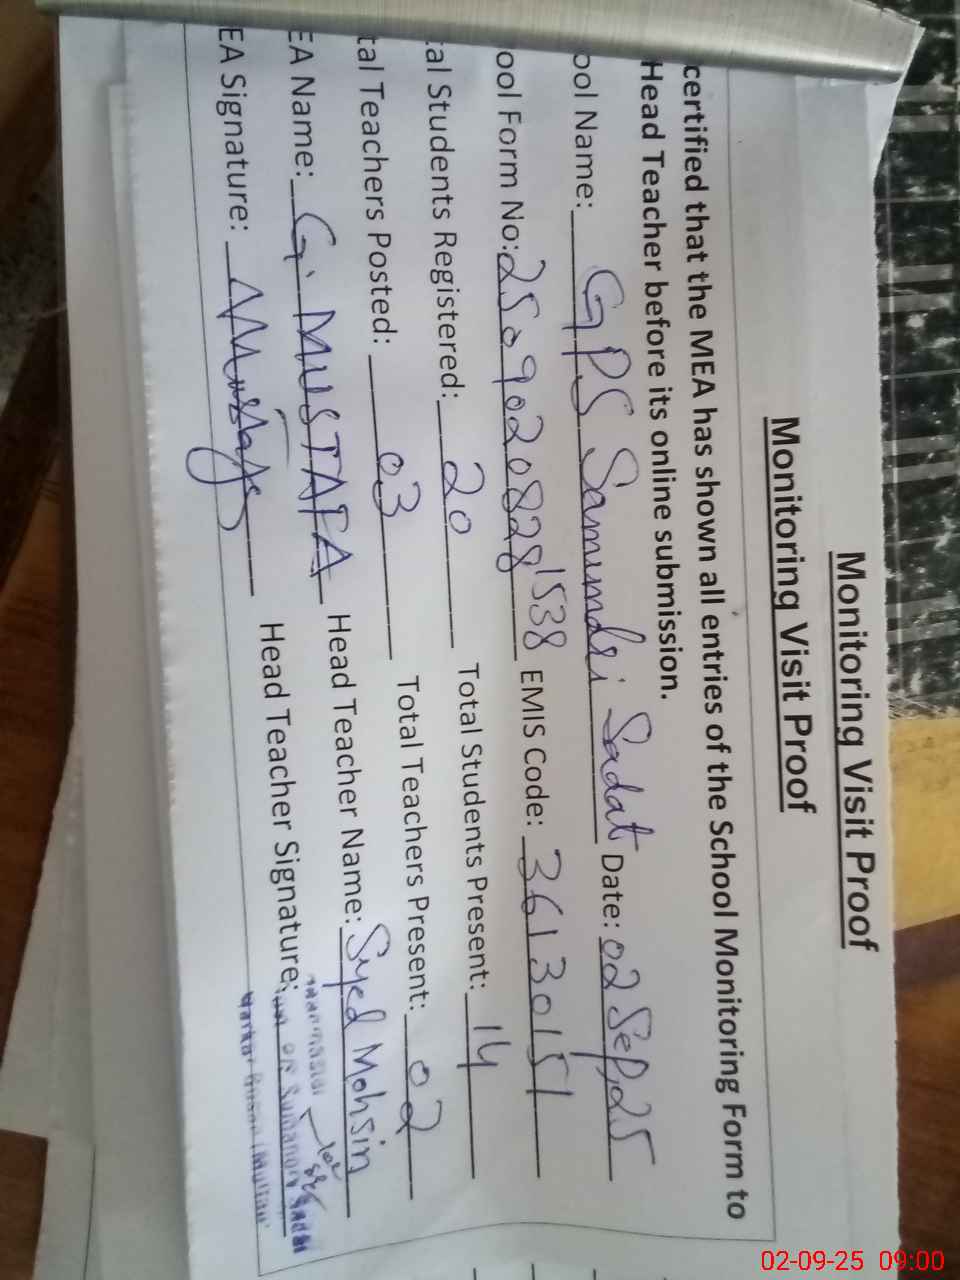 Monitoring Visit Proof
Monitoring Visit Proof
certified that the MEA has shown all entries of the School Monitoring Form to
Head Teacher before its online submission.
ool Name: GPS Samundri Sadat Date: 02 Sep,25
ool Form No: 25090208281538 EMIS Code: 36130151
al Students Registered: 20 Total Students Present: 14
tal Teachers Posted: 03 Total Teachers Present: 02
EA Name: G. MUSTAFA Head Teacher Name: Syed Mohsin
EA Signature: Head Teacher Signature:
02-09-25 09:00